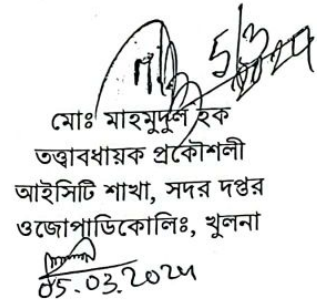 5/3/2024
মোঃ মাহমুদুল হক
তত্ত্বাবধায়ক প্রকৌশলী
আইসিটি শাখা, সদর দপ্তর
ওজোপাডিকোলিঃ, খুলনা
05.03.2024